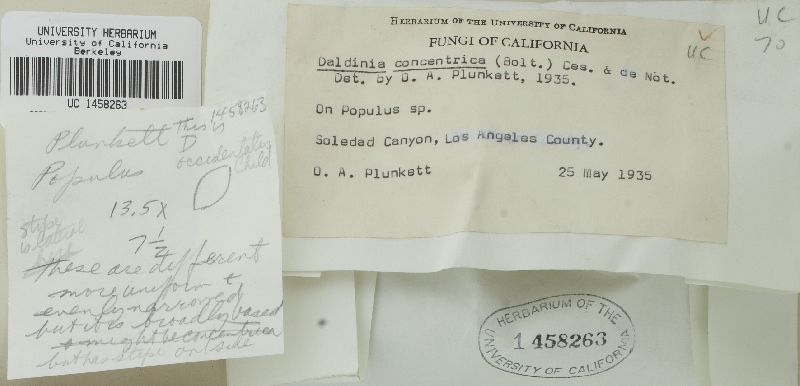 UNIVERSITY HERBARIUM
University of California
Berkeley
UC 1458263
1458263
Plunkett This is
D
occidentalis
Child
Populus
13.5 x
7 1/2
stipe
is lateral
These are different
more uniform +
evenly narrowed
but it is broadly based
might be concentrica
but has stipe on side
HERBARIUM OF THE UNIVERSITY OF CALIFORNIA
FUNGI OF CALIFORNIA
Daldinia concentrica (Bolt.) Ces. & de Not.
Det. by O. A. Plunkett, 1935.
On Populus sp.
Soledad Canyon, Los Angeles County.
O. A. Plunkett 25 May 1935
UC
UC
70
HERBARIUM OF THE
1458263
UNIVERSITY OF CALIFORNIA